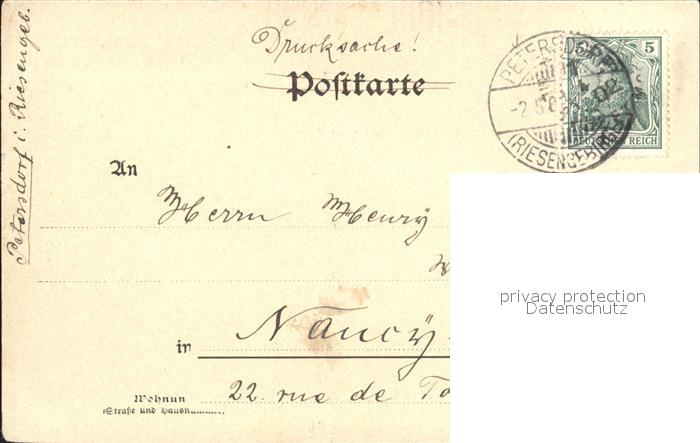 Petersdorf i. Riesengeb.
Drucksache!
Postkarte
5
DEUTSCHES REICH
PETERSDORF
-2.5.02
(RIESENGEBIRGE)
An
Herrn Henry
in Nancy
22. rue de
Wohnun
(Straße und Hausn
privacy protection
Datenschutz